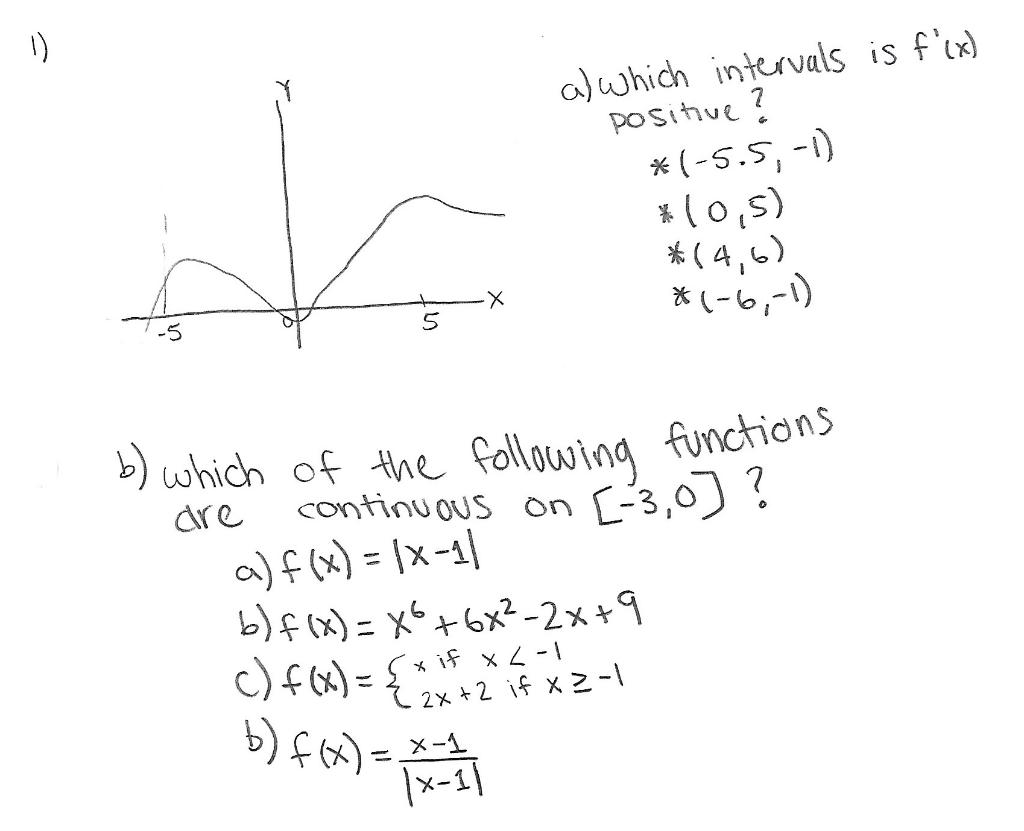 1)
Y
a) which intervals is f'(x)
positive?
* (-5.5, -1)
* (0,5)
* (4,6)
* (-6,-1)
X
-5
0
5
b) which of the following functions
are continuous on [-3,0]?
a) f(x) = |x-1|
b) f(x) = x⁶ + 6x² - 2x + 9
c) f(x) = { x if x < -1
2x+2 if x ≥ -1
b) f(x) = x-1
|x-1|